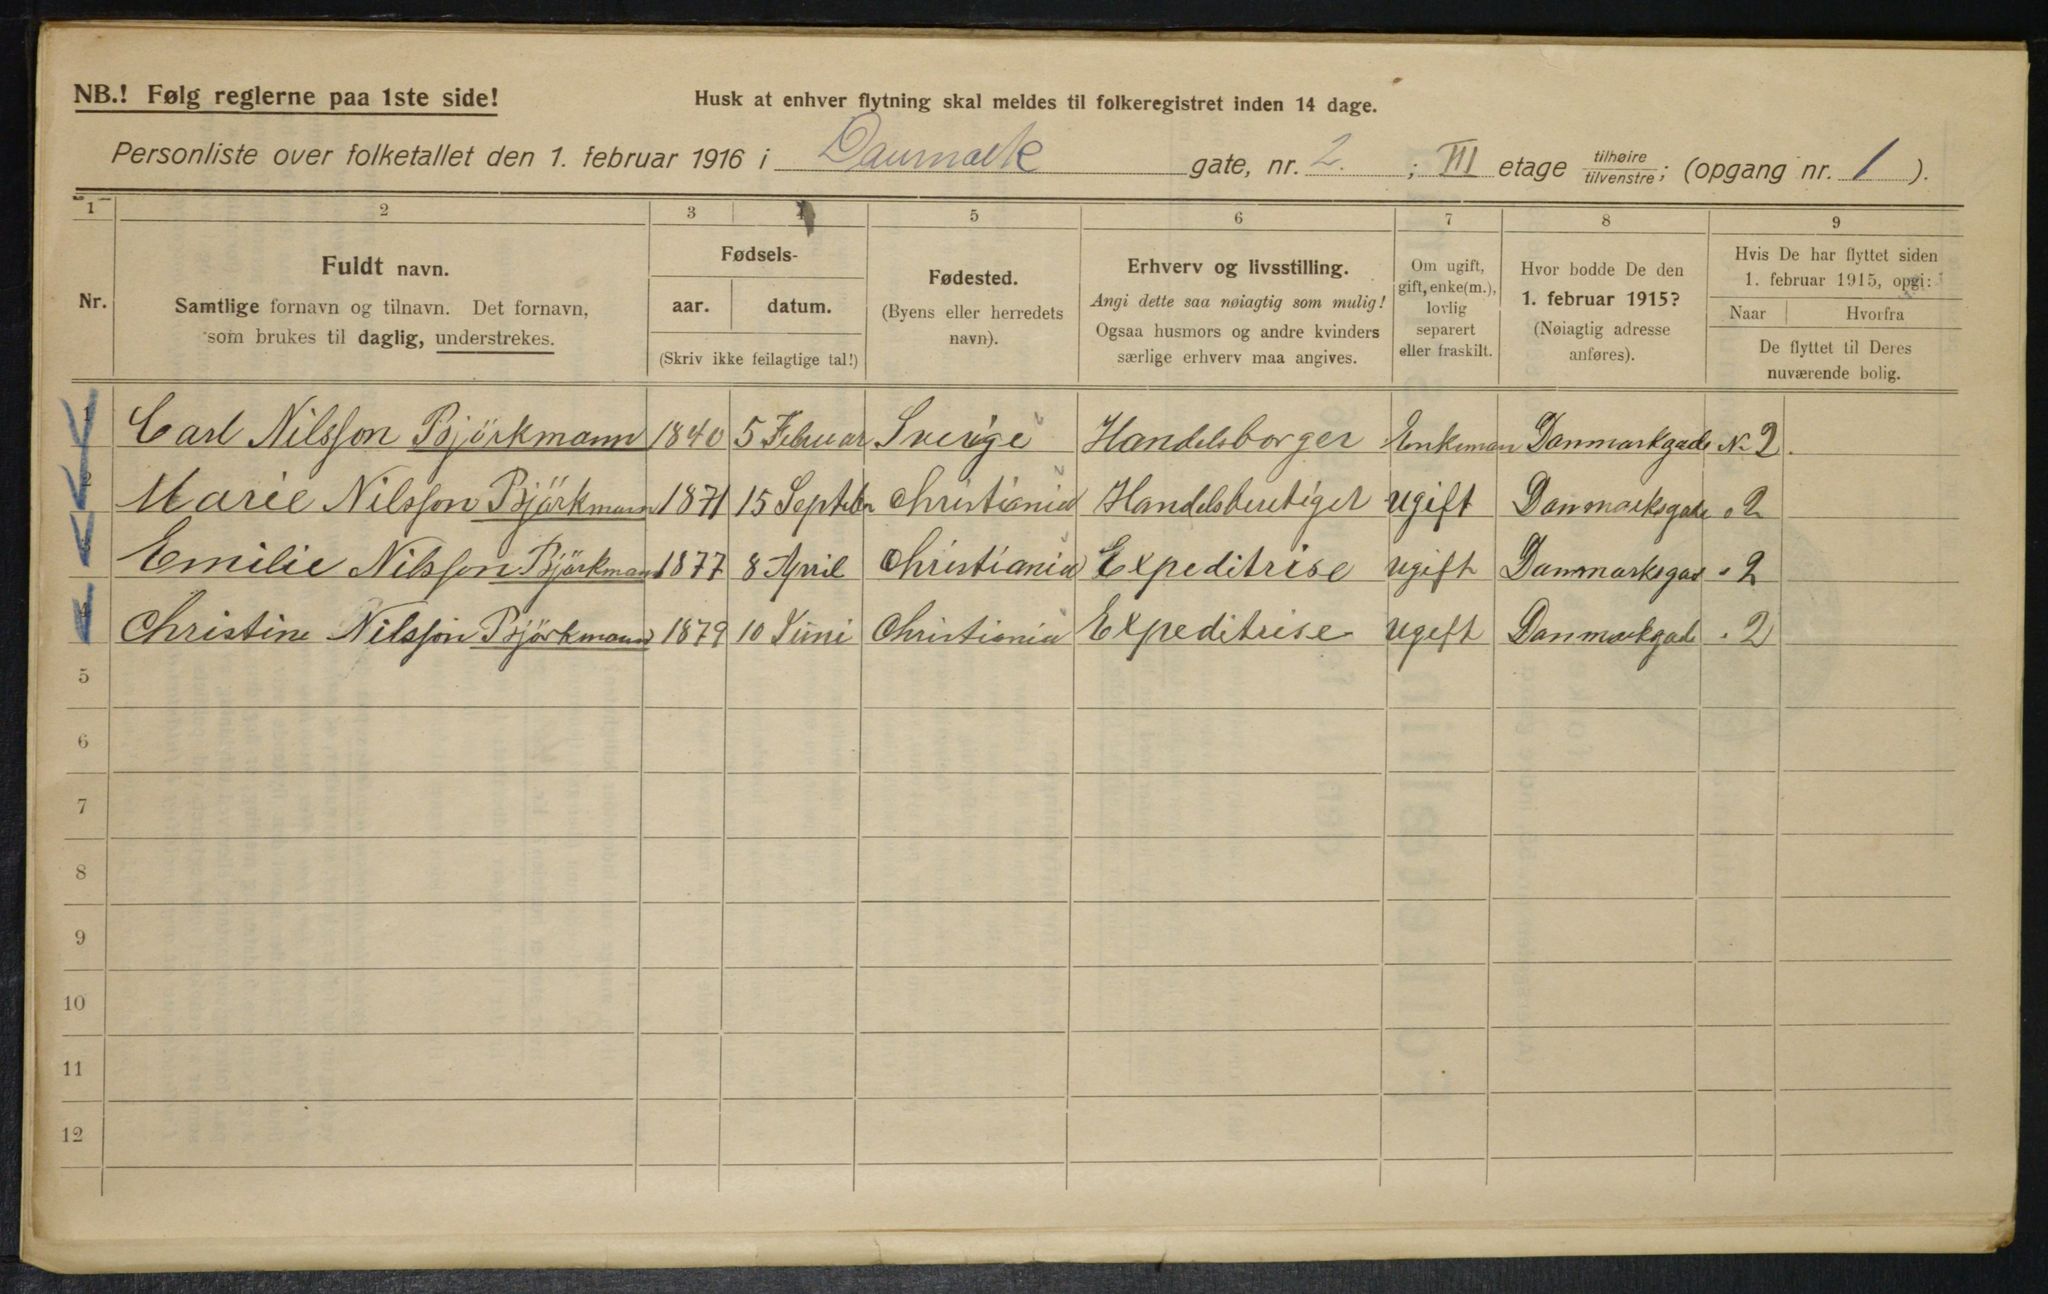 NB.! Følg reglerne paa 1ste side!
Husk at enhver flytning skal meldes til folkeregistret inden 14 dage.
Personliste over folketallet den 1. februar 1916 i Danmark gate, nr. 2. ; III etage tilhøire tilvenstre; (opgang nr. 1 ).
1 2 3 4 5 6 7 8 9
Nr.
Fuldt navn.
Samtlige fornavn og tilnavn. Det fornavn,
som brukes til daglig, understrekes.
Fødsels-
aar. datum.
(Skriv ikke feilagtige tal!)
Fødested.
(Byens eller herredets
navn).
Erhverv og livsstilling.
Angi dette saa nøiagtig som mulig!
Ogsaa husmors og andre kvinders
særlige erhverv maa angives.
Om ugift,
gift, enke(m.),
lovlig
separert
eller fraskilt.
Hvor bodde De den
1. februar 1915?
(Nøiagtig adresse
anføres).
Hvis De har flyttet siden
1. februar 1915, opgi:
Naar Hvorfra
De flyttet til Deres
nuværende bolig.
1 Carl Nilsson Björkmann 1840 5 Februar Sverige Handelsborger Enkeman Danmarkgade No 2.
2 Marie Nilsson Björkmann 1871 15 Septebr Christiania Handelsberetiget ugift Danmarksgade " 2
3 Emilie Nilsson Björkman 1877 8 April Christiania Expeditrise ugift Danmarksgad " 2
4 Christine Nilsson Björkmann 1879 10 Juni Christiania Expeditrise ugift Danmarkgade " 2
5
6
7
8
9
10
11
12